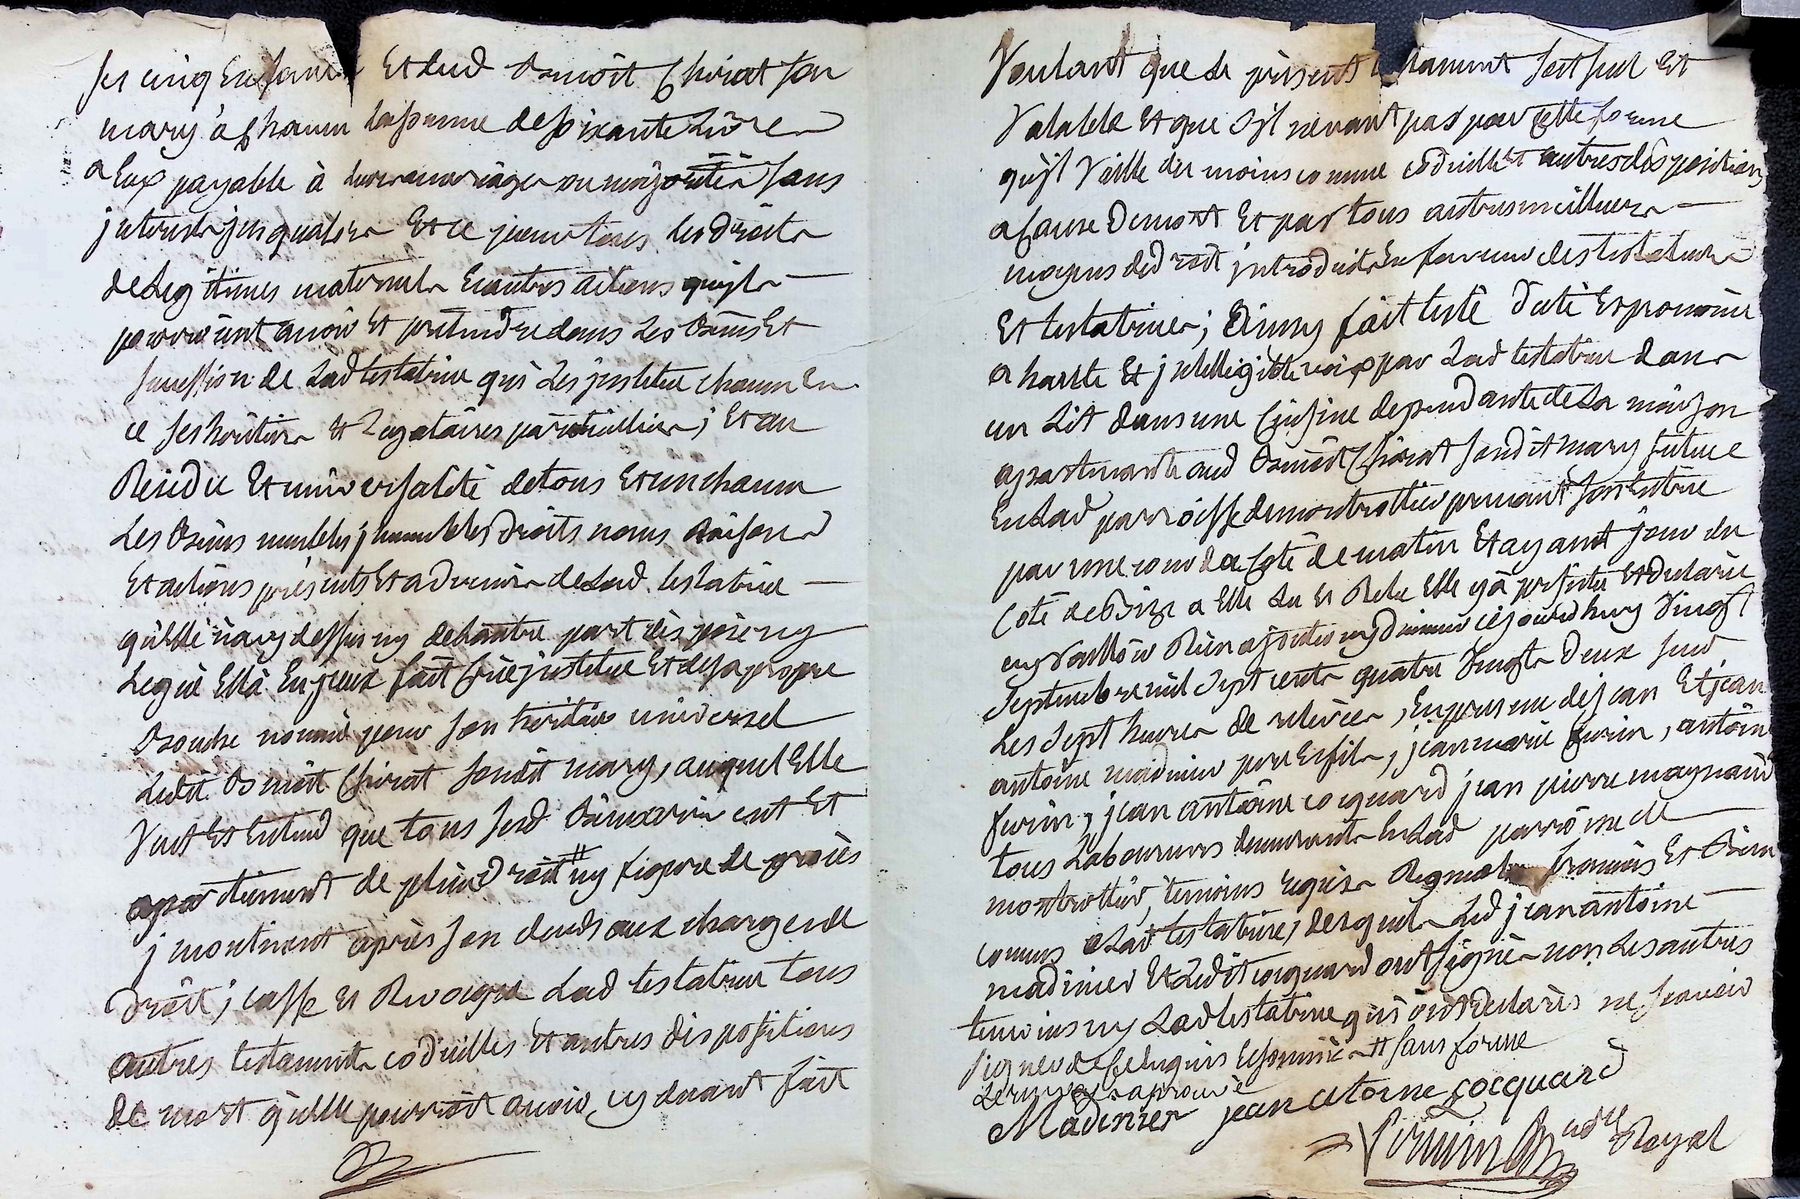 ses cinq Enfans Et dud Benoit Chirat son
mary a chacun la somme de soixante Livres
a Eux payable à leurs mariages ou majorités sans
jnterets jusqualors Et ce pour tous les droits
de Legitimes maternels Et autres actions quils
pourroient avoir Et pretendre dans Les biens Et
succession de Lad testatrice qui Les jnstitue chacun En
ce ses héritiers & Legataires particuliers ; Et au
Residu Et universalité de tous Et un chacun
Les biens meubles jmmeubles droits noms Raisons
Et actions présents Et advenir de Lad. testatrice
quelle nay dessus ny debautre part disposé ny
Legué Ella En jceux fait Crée jnstitue Et de sa propre
bouche nommé pour son heritier universel
Ledit Benoit Chirat sondit mary, auquel Elle
Veut Et Entend que tous sesd biens arrivent Et
apartiennent de plein droit # ny figure de procès
j montinent après son decès aux charges de
droit ; casse Et Revoque Lad testatrice tous
autres testaments codicilles Et autres dispositions
de mort quelle pourroit avoir cy devant fait
Voulant que le présent testament soit seul Et
Valable Et que sil nevaut pas pour cette forme
quil Vaille du moins comme codicille Et autres dispositions
a Cause de mort Et par tous autres meilleurs
moyens de droit jntroduits En faveur des testateurs
Et testatrices ; Ainsy fait testé dicté Et prononcé
a haute Et jntelligible voix par Lad testatrice dans
un Lit dans une Cuisine dependante de La maison
apartenante aud Benoit Chirat sondit mary située
En Lad parroisse de montrottier prenant son Entrée
par une cour du Coté de matin Et ayant jour du
Coté de bize a Elle Lu Et Relu Elle y a persisté Et declaré
ny Vouloir Rien ajouter ny diminuer cejourdhuy Vingt
Septembre mil Sept cents quatre Vingts deux sur
Les Sept heures de relevée, En presence de jean Et jean
antoine madinier pere Et fils, jean marie ferrier, antoine
ferrier, jean antoine cocquard jean pierre magnaud
tous Laboureurs demeurants En Lad parroisse de
montrottier, temoins requis Et Bien
connus a Lad testatrice, desquels Led jean antoine
madinier Et Ledit cocquard ont signé non Les autres
temoins ny Lad testatrice qui ont declarés ne scavoir
signer de ce Enquis Et sommés # sans forme
Le renvoy aprouvé
Madinier jean antoine Cocquard
No^re Royal